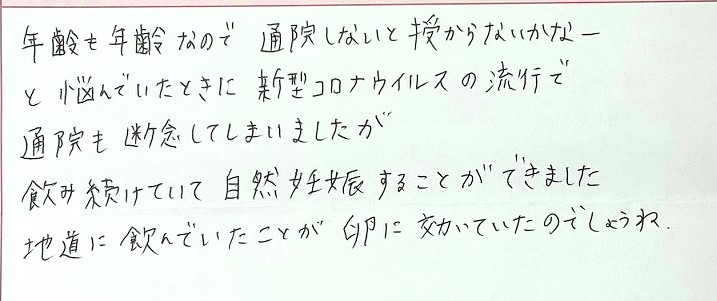 年齢も年齢なので 通院しないと授からないかなー
と悩んでいたときに 新型コロナウイルスの流行で
通院も断念してしまいましたが
飲み続けていて 自然妊娠することができました
地道に飲んでいたことが 卵に効いていたのでしょうね.